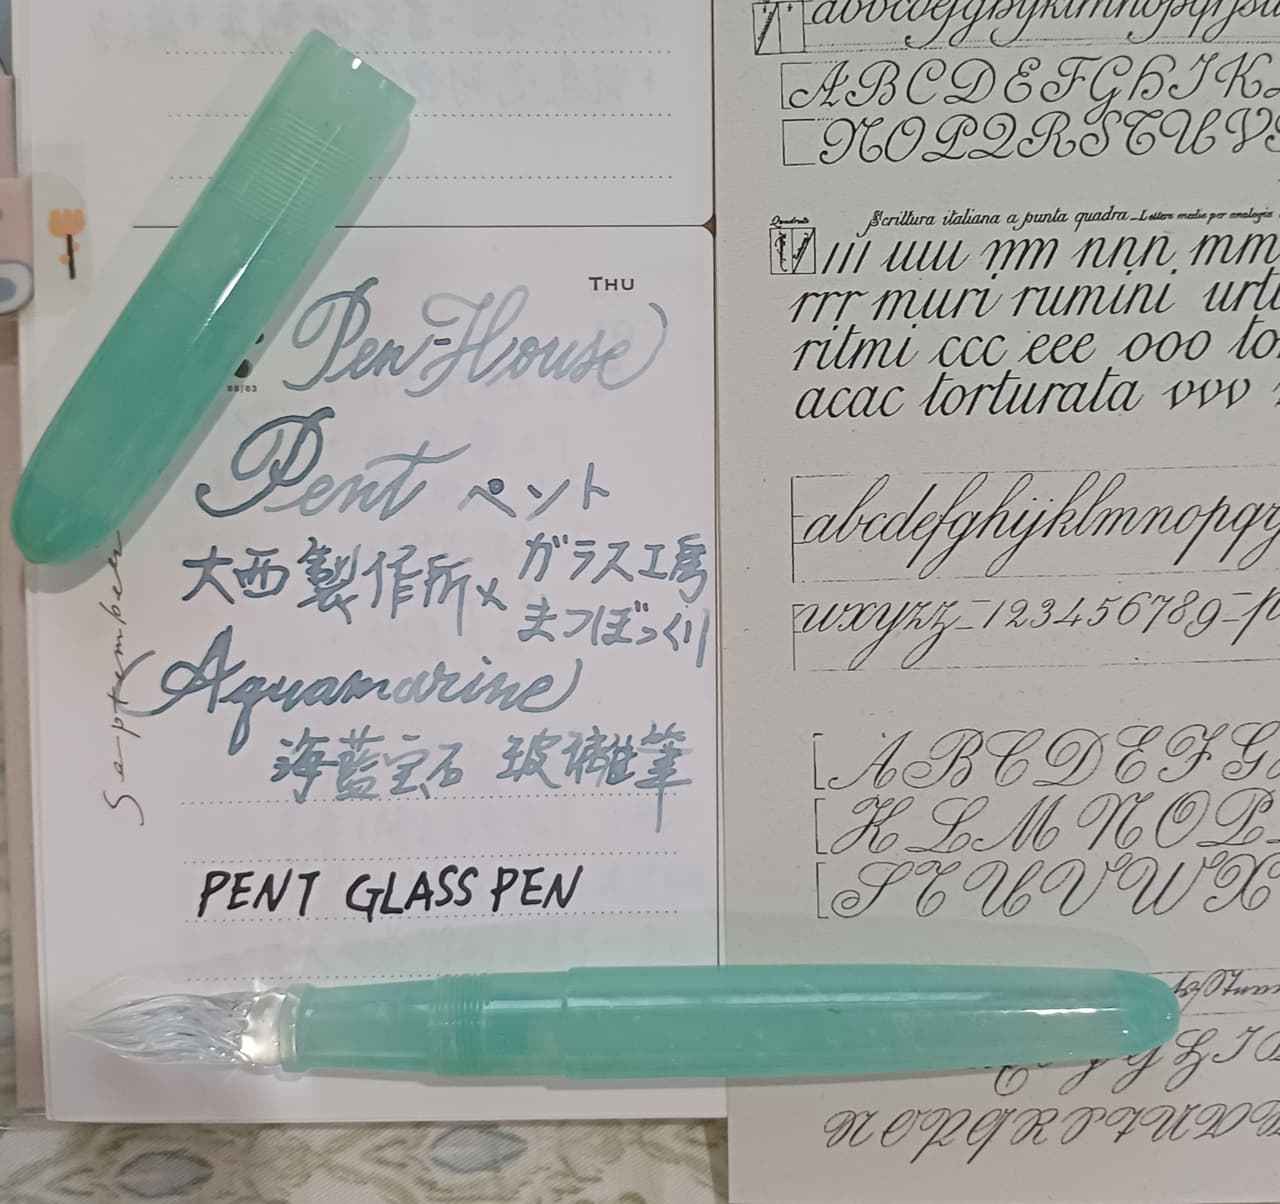 THU
Pen-House
08/03
Pent ペント
大西製作所×ガラス工房
まつぼっくり
(Aquamarine)
海藍宝石 玻璃筆
PENT GLASS PEN
September
abbcdefghyklmnopqrs
ABCDEFGHIJK
NOPQRSTUV
Quadrato
Scrittura italiana a punta quadra - Lettere medie per analogia
iii uuu mm nnn mm
rrr muri rumini urti
ritmi ccc eee ooo
acac torturata vvv
abcdefghijklmnopqr
wxyzz - 123456789 -
ABCDEFG
KLMNOP
STUVWX